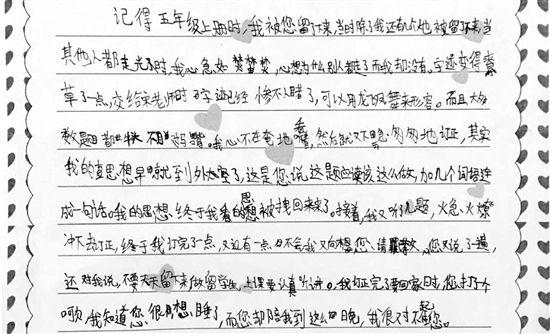 记得五年级上册时，我被您留下来，当时除了我还有几位被留下来，当
其他人都走光了时，我心急如焚焚焚，心想为什么别人都走了而我却没有。字迹变得潦
草了一点，交给宋老师时字迹已经惨不忍睹了，可以用龙飞凤舞来形容。而且大多
数题目都错。我心不在焉地看，然后就又急匆匆地订正，其实
我的思想早就到外太空了，这是您说这题应该这么做，加几个词语连
成一句话。我的思想终于被拽回来了。接着，我又听了几题，火急火燎
冲下去订正，终于我订完了一点，又还有一点不会我又向您请教，您又说了一遍，
还对我说，不要天天留下来做留学生，上课要认真听讲。我订正完了要回家时，您打了个
呵欠，我知道您很想睡了，而您却陪我到这么晚，我很对不起您。